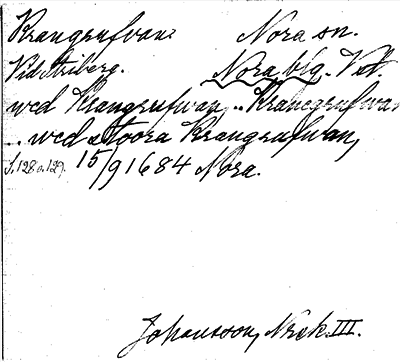 Krangrufvan. Nora sn.
Vid Striberg. Nora bg. Vstm.
wed Krangrufwan, .. Krangrufwan
.. wed stoora Krangrufwan,
s. 128 o. 129. 15/9 1684 Nora.
Johansson, Närk. III.